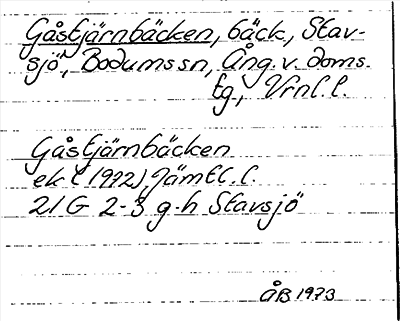 Gåstjärnbäcken, bäck, Stav-
sjö, Bodums sn, Ång. v. doms.
tg, Vrnl. l.
Gåstjärnbäcken
ek (1972) Jämtl. l.
21G 2-3 g-h Stavsjö
ÅB 1973